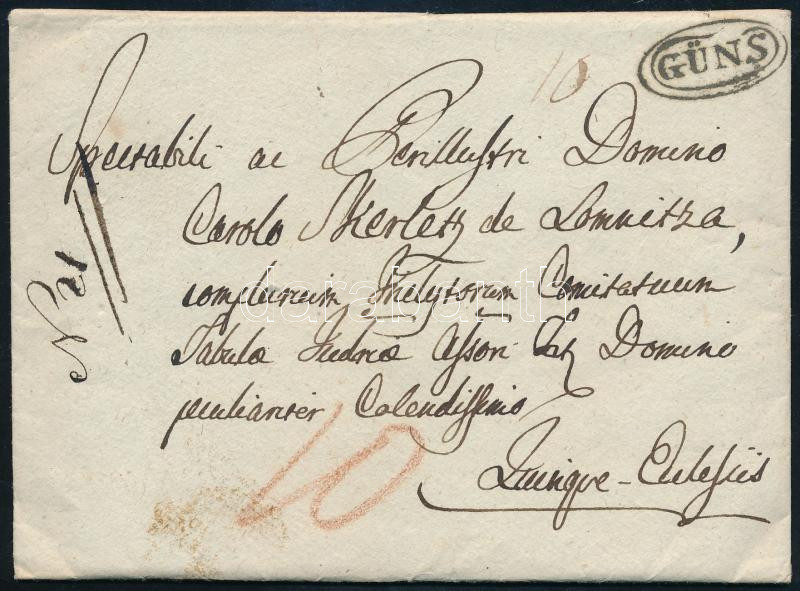 GÜNS
10
Spectabili ac Perillustri Domino
Carolo Skerletz de Lomnitza,
complurium Inclytorum Comitatuum
Tabulæ Judriæ Assori Domino
peculiariter Colendissimo
Quinque-Eclesiis
10